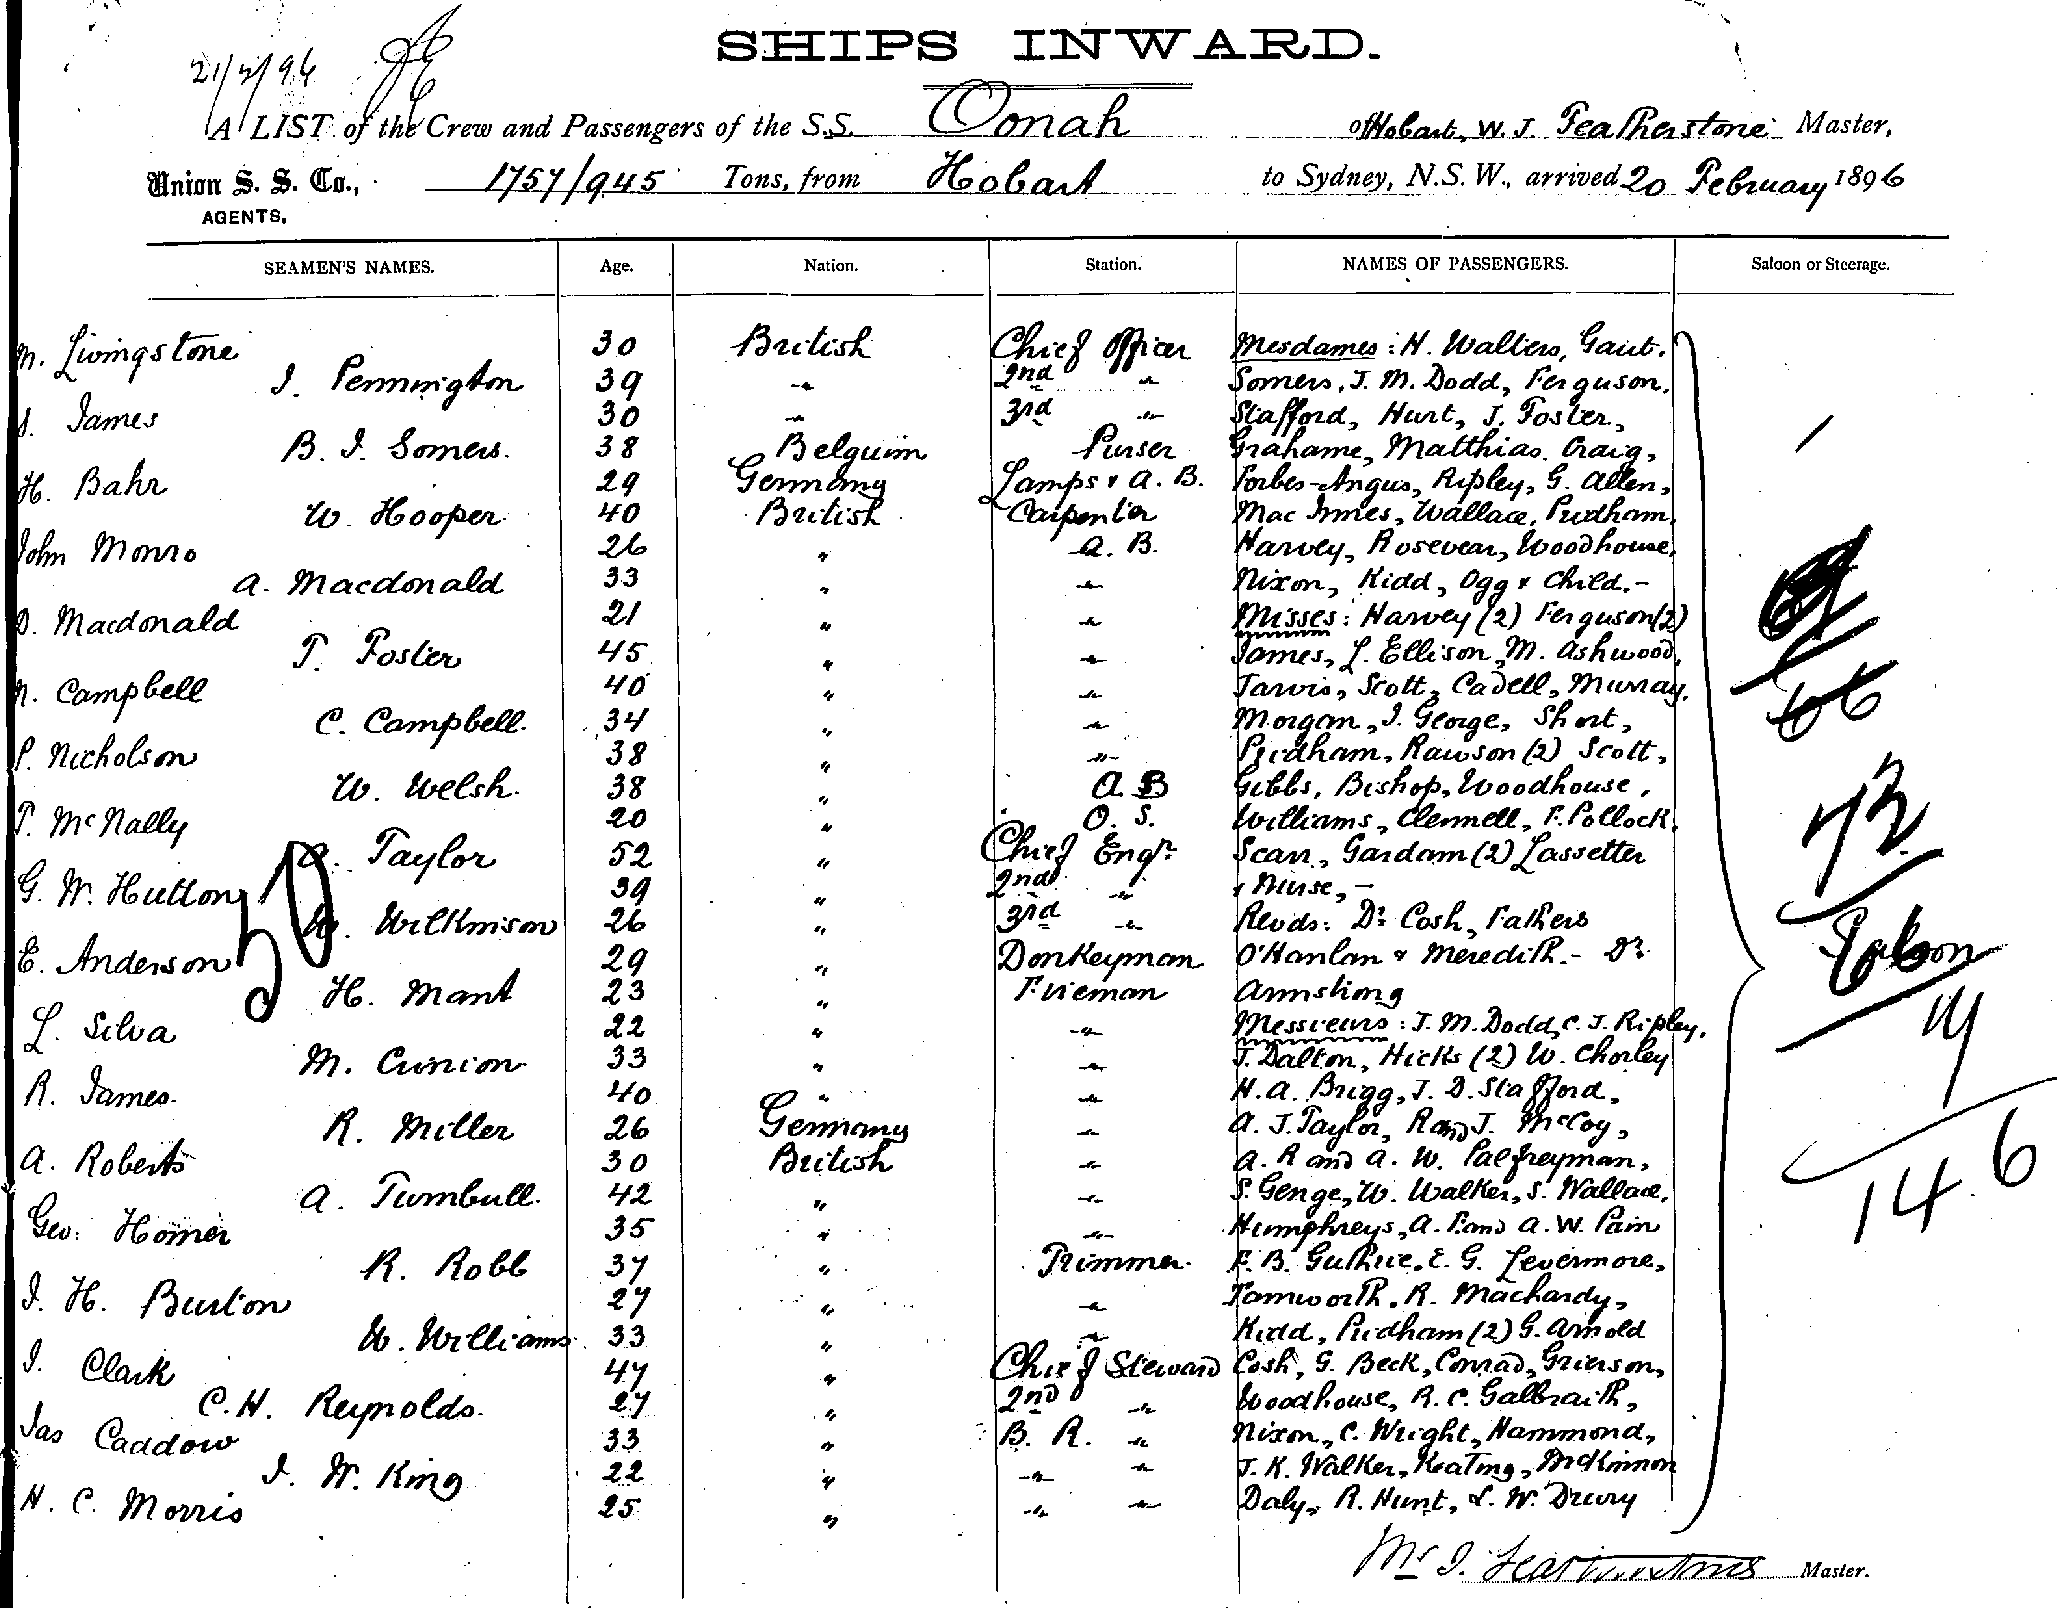 SHIPS INWARD.
21/2/96
A LIST of the Crew and Passengers of the S.S. Oonah of Hobart, W. J. Featherstone Master,
Union S. S. Co., 1757/945 Tons, from Hobart to Sydney, N.S.W., arrived 20 February 1896
AGENTS.
SEAMEN'S NAMES. Age. Nation. Station. NAMES OF PASSENGERS. Saloon or Steerage.
M. Livingstone 30 British Chief Officer Mesdames: H. Walters, Gaut.
J. Pennington 39 " 2nd " Somers, J. M. Dodd, Ferguson,
James 30 " 3rd " Stafford, Hurt, J. Foster,
B. J. Somers. 38 Belguim Purser Grahame, Matthias, Craig,
H. Bahr 29 Germany Lamps & A. B. Forbes-Angus, Ripley, G. Allen,
W. Hooper 40 British Carpenter Mac Innes, Wallace, Pridham,
John Monro 26 " A. B. Harvey, Rosevear, Woodhouse,
A. Macdonald 33 " " Nixon, Kidd, Ogg & Child.-
D. Macdonald 21 " " Misses: Harvey (2) Ferguson (2)
T. Foster 45 " " James, L. Ellison, M. Ashwood,
N. Campbell 40 " " Jarvis, Scott, Cadell, Murray,
C. Campbell. 34 " " Morgan, J. George, Short,
P. Nicholson 38 " " Pridham, Rawson (2) Scott,
W. Welsh. 38 " A B Gibbs, Bishop, Woodhouse,
T. McNally 20 " O. S. Williams, Clennell, F. Pollock,
Taylor 52 " Chief Engr. Scarr, Gardam (2) Lassetter
G. W. Hutton 39 " 2nd " & Nurse,-
W. Wilkinson 26 " 3rd " Revds: Dr Cosh, Fathers
E. Anderson 29 " Donkeyman O'Hanlan & Meredith.- Dr.
H. Mant 23 " Fireman Armstrong
L. Silva 22 " " Messieurs: J. M. Dodd, C. J. Ripley,
M. Cunion 33 " " J. Dalton, Hicks (2) W. Chorley
R. James. 40 " " H. A. Brigg, J. D. Stafford,
R. Miller 26 Germany " A. J. Taylor, R and J. McCoy,
A. Roberts 30 British " A. R and A. W. Palfreyman,
A. Turnbull. 42 " " S. Genge, W. Walker, S. Wallace,
Geo: Homer 35 " " Humphreys, A. F. and A. W. Pain
R. Robb 37 " Trimmer. F. B. Guthrie, E. G. Levermore,
J. H. Burton 27 " " Tamworth, R. Machardy,
W. Williams 33 " " Kidd, Pridham (2) G. Arnold
J. Clark 47 " Chief Steward Cosh, G. Beck, Conrad, Grierson,
C. H. Reynolds. 27 " 2nd " Woodhouse, R. C. Galbraith,
Jas Caddow 33 " B. R. " Nixon, C. Wright, Hammond,
J. W. King 22 " " " J. K. Walker, Keating, McKinnon
H. C. Morris 25 " " " Daly, R. Hunt, L. W. Drury
50
66
73
Saloon
146
Master.